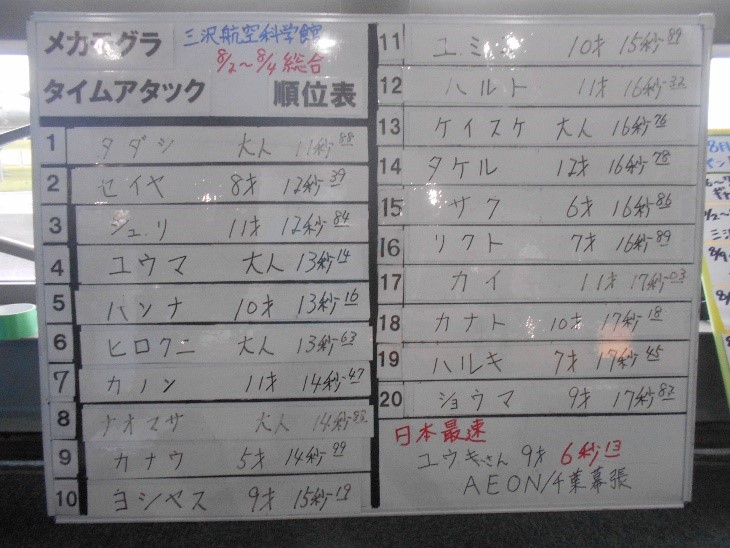 メカモグラ 三沢航空科学館
8/2〜8/4 総合
タイムアタック 順位表
1 タダシ 大人 11秒88
2 セイヤ 8才 12秒39
3 ジュリ 11才 12秒84
4 ユウマ 大人 13秒14
5 ハンナ 10才 13秒16
6 ヒロクニ 大人 13秒63
7 カノン 11才 14秒47
8 ナオマサ 大人 14秒83
9 カナウ 5才 14秒99
10 ヨシヤス 9才 15秒19
11 ユミ 10才 15秒89
12 ハルト 11才 16秒32
13 ケイスケ 大人 16秒76
14 タケル 12才 16秒78
15 サク 6才 16秒86
16 リクト 7才 16秒89
17 カイ 11才 17秒03
18 カナト 10才 17秒18
19 ハルキ 7才 17秒45
20 ショウマ 9才 17秒82
日本最速
ユウキさん 9才 6秒13
AEON/千葉幕張
8月